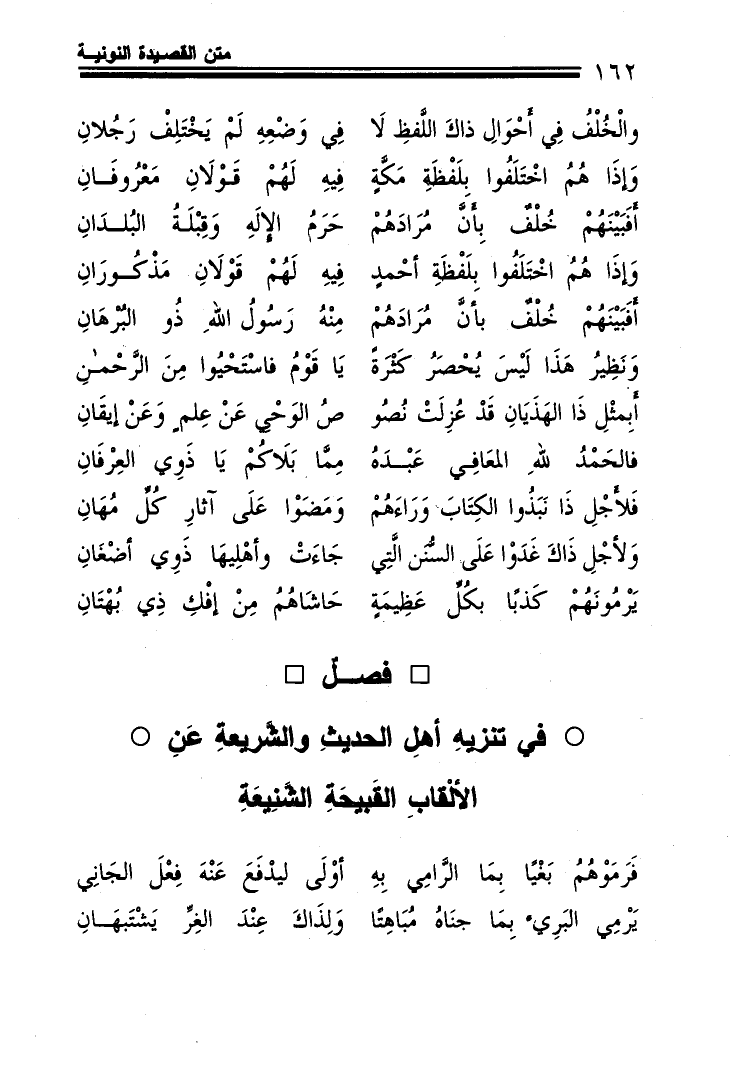 متن القصيدة النونية
١٦٢
والْخُلْفُ فِي أَحْوَالِ ذاكَ اللَّفظِ لَا فِي وَضْعِهِ لَمْ يَخْتَلِفْ رَجُلانِ
وَإِذَا هُمُ اخْتَلَفُوا بِلَفْظَةِ مَكَّةٍ فِيهِ لَهُمْ قَوْلَانِ مَعْرُوفَانِ
أَفَبَيْنَهُمْ خُلْفٌ بِأَنَّ مُرَادَهُمْ حَرَمُ الإلَهِ وَقِبْلَةُ البُلدَانِ
وَإِذَا هُمُ اخْتَلَفُوا بِلَفْظَةِ أحْمدٍ فِيهِ لَهُمْ قَوْلَانِ مَذْكُورَانِ
أَفَبَيْنَهُمْ خُلْفٌ بأنَّ مُرَادَهُمْ مِنْهُ رَسُولُ اللهِ ذُو البُرْهَانِ
وَنَظِيرُ هَذَا لَيْسَ يُحْصَرُ كَثْرَةً يَا قَوْمُ فاسْتَحْيُوا مِنَ الرَّحْمٰنِ
أَبِمثْلِ ذَا الهَذَيَانِ قَدْ عُزِلَتْ نُصُو صُ الوَحْيِ عَنْ عِلمٍ وَعَنْ إيقَانِ
فالحَمْدُ للهِ المعَافِي عَبْدَهُ مِمَّا بَلَاكُمْ يَا ذَوِي العِرْفَانِ
فَلأَجْلِ ذَا نَبَذُوا الكِتَابَ وَرَاءَهُمْ وَمَضَوْا عَلَى آثارِ كُلِّ مُهَانِ
وَلأَجْلِ ذَاكَ غَدَوْا عَلَى السُّنَن الَّتِي جَاءَتْ وأهْلِيهَا ذَوِي أضْغَانِ
يَرْمُونَهُمْ كَذبًا بكُلِّ عَظِيمَةٍ حَاشَاهُمُ مِنْ إفْكِ ذِي بُهْتَانِ
□ فصلٌ □
○ في تنزيهِ أهلِ الحديثِ والشَّريعةِ عَنِ ○
الألْقابِ القَبيحَةِ الشَّنِيعَةِ
فَرَمَوْهُمُ بَغْيًا بِمَا الرَّامِي بِهِ أوْلَى ليدْفَعَ عَنْهَ فِعْلَ الجَانِي
يَرْمِي البَرِيءَ بِمَا جناهُ مُبَاهِتًا وَلِذَاكَ عِنْدَ الغِرِّ يَشْتَبِهَانِ